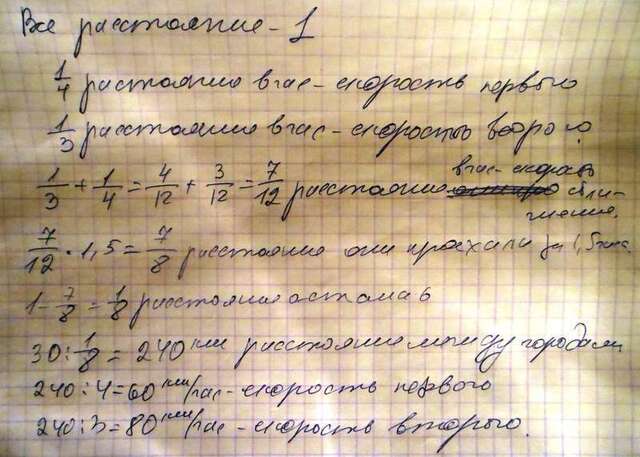 Все расстояние - 1
1/4 расстояние в час - скорость первого
1/3 расстояние в час - скорость второго
1/3 + 1/4 = 4/12 + 3/12 = 7/12 расстояние в час - скорость сближения.
7/12 · 1,5 = 7/8 расстояние они проехали за 1,5 часа.
1 - 7/8 = 1/8 расстояние осталось
30 : 1/8 = 240 км расстояние между городами
240 : 4 = 60 км/час - скорость первого
240 : 3 = 80 км/час - скорость второго.